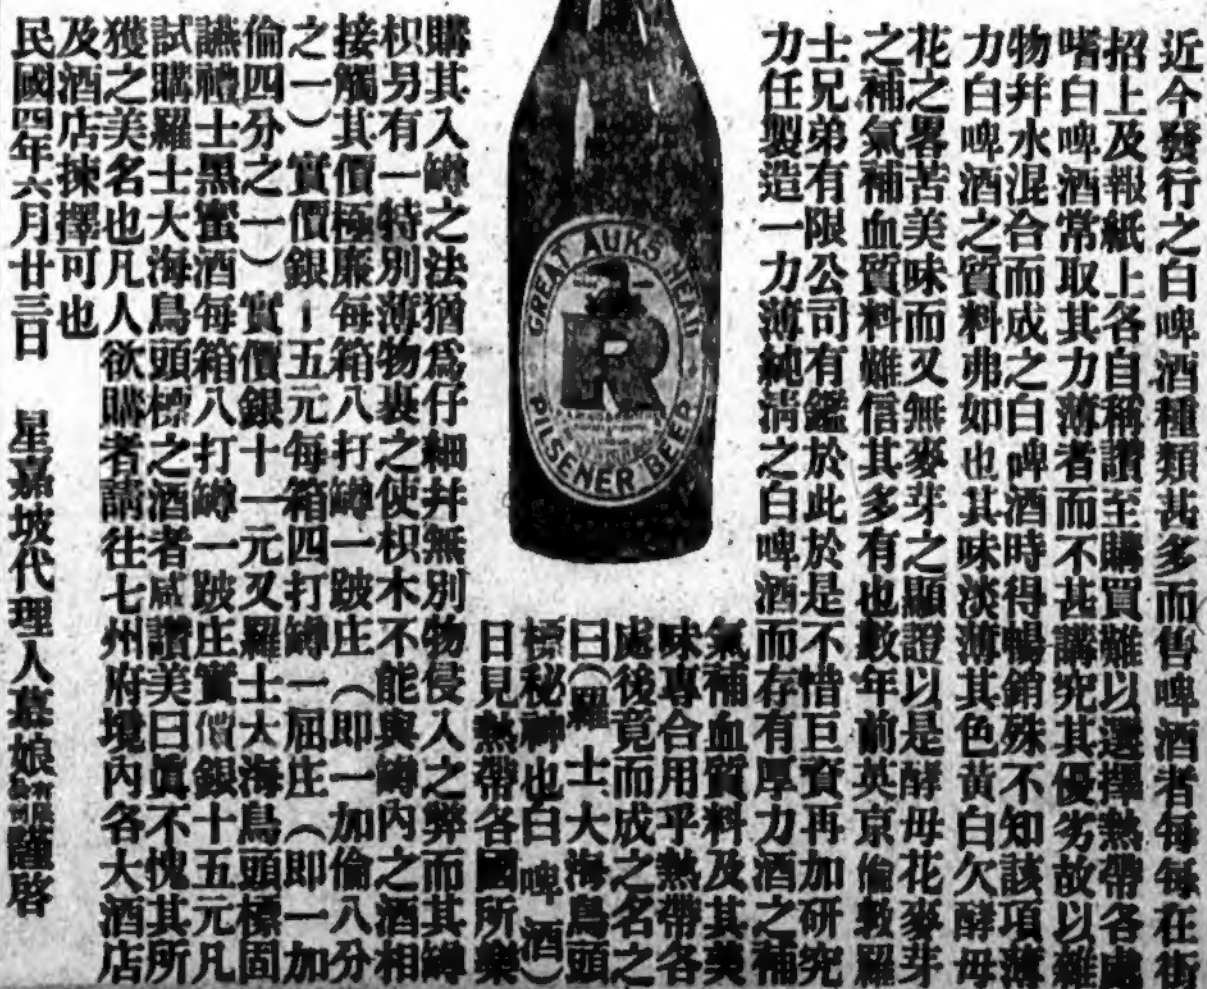 近今發行之白啤酒種類甚多而售啤酒者每每在街
招上及報紙上各自稱讚至購買難以選擇熱帶各處
嗜白啤酒常取其力薄者而不甚講究其優劣故以雜
物井水混合而成之白啤酒時得暢銷殊不知該項薄
力白啤酒之質料弗如也其味淡薄其色黃白欠酵母
花之畧苦美味而又無麥芽之顯證以是酵母花麥芽
之補氣補血質料難信其多有也數年前英京倫敦羅
士兄弟有限公司有鑑於此於是不惜巨資再加研究
力任製造一力薄純清之白啤酒而存有厚力酒之補
氣補血質料及其美
味專合用乎熱帶各
處後竟而成之名之
曰(羅士大海鳥頭
標秘神也白啤酒)
日見熱帶各國所樂
購其入罇之法猶爲仔細井無別物侵入之弊而其罇
枳另有一特別薄物裹之使枳木不能與罇內之酒相
接觸其價極廉每箱八打罇一跛庄(即一加倫八分
之一)實價銀十五元每箱四打罇一屈庄(即一加
倫四分之一)實價銀十一元又羅士大海鳥頭標固
讌禮士黑蜜酒每箱八打罇一跛庄實價銀十五元凡
試購羅士大海鳥頭標之酒者感讚美曰眞不愧其所
獲之美名也凡人欲購者請往七州府境內各大酒店
及酒店揀擇可也
民國四年六月廿三日 星嘉坡代理人慕娘有限公司謹啓
GREAT AUK'S HEAD
R
PILSENER BEER